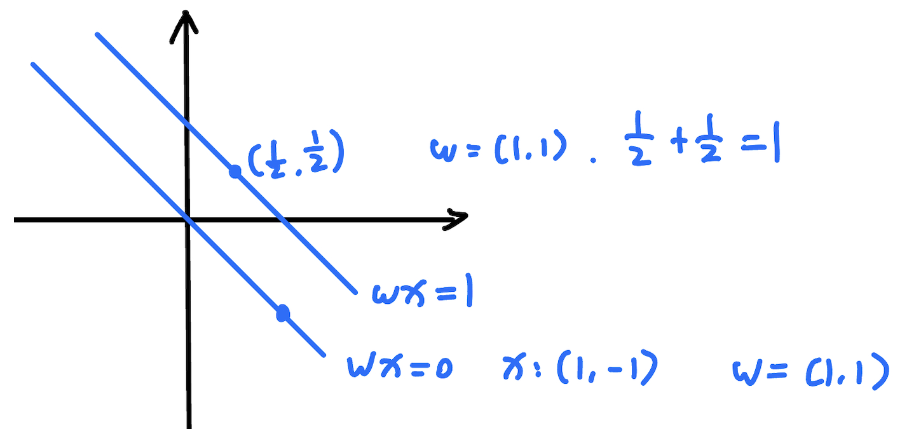 (½, ½) w = (1,1) . ½ + ½ = 1
wx = 1
wx = 0 x: (1, -1) w = (1,1)